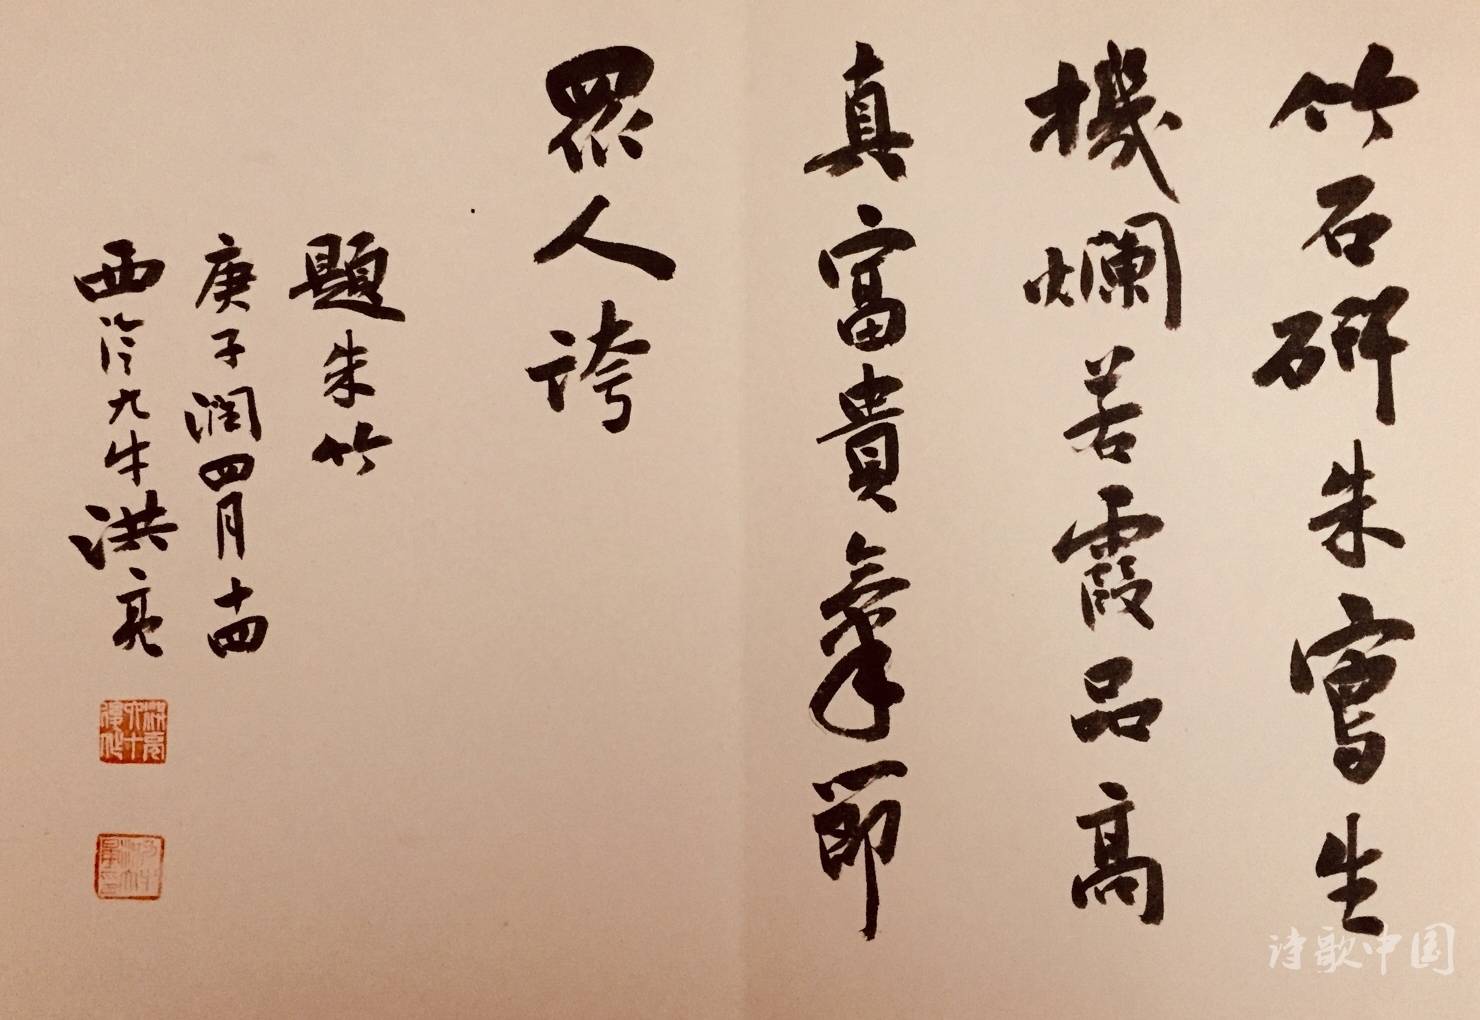 竹石研朱寫生
機爛若霞品高
真富貴氣節
眾人誇
題朱竹
庚子潤四月十四
西泠九牛洪亮
诗歌中国